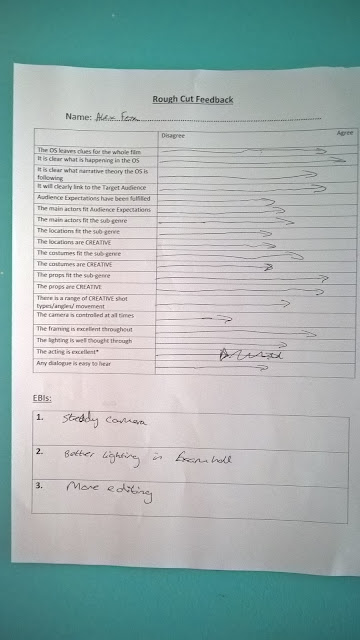 Rough Cut Feedback
Name: Alex
Disagree Agree
The OS leaves clues for the whole film
It is clear what is happening in the OS
It is clear what narrative theory the OS is
following
It will clearly link to the Target Audience
Audience Expectations have been fulfilled
The main actors fit Audience Expectations
The main actors fit the sub-genre
The locations fit the sub-genre
The locations are CREATIVE
The costumes fit the sub-genre
The costumes are CREATIVE
The props fit the sub-genre
The props are CREATIVE
There is a range of CREATIVE shot
types/angles/ movement
The camera is controlled at all times
The framing is excellent throughout
The lighting is well thought through
The acting is excellent*
Any dialogue is easy to hear
EBIs:
1. Steddy camera
2. Better lighting in Examhall
3. More editing